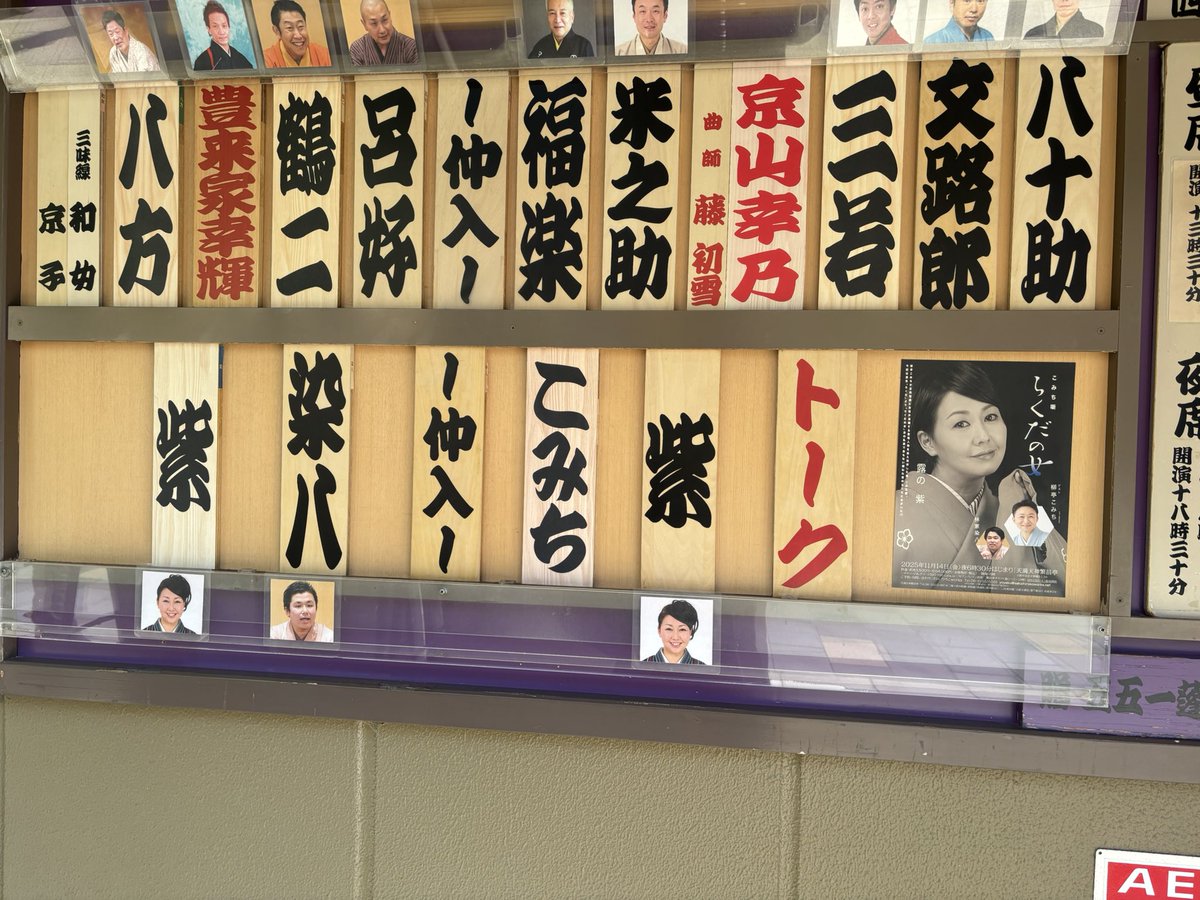 八十助
文路郎
三若
京山幸乃
曲師 藤初雪
米之助
福楽
ー仲入ー
呂好
鶴二
豊来家幸輝
八方
三味線 和女
京子
昼席
開演十三時三十分
夜席
開演十八時三十分
こみち噺
らくだの女
柳亭こみち
露の紫
2025年11月14日(金)夜6時30分はじまり 天満天神繁昌亭
トーク
紫
こみち
ー仲入ー
染八
紫
AE